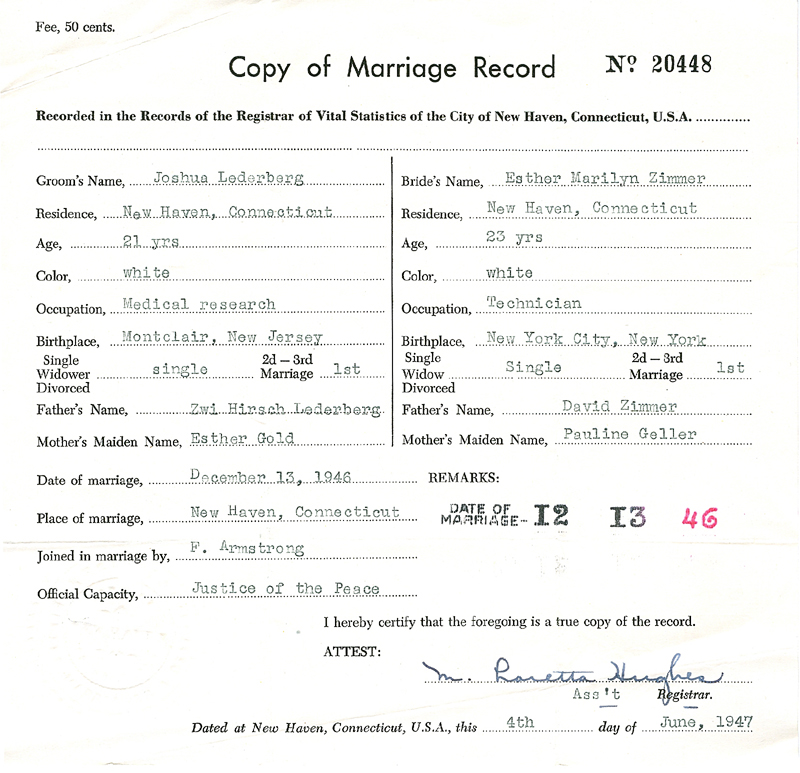 Fee, 50 cents.
Copy of Marriage Record Nº 20448
Recorded in the Records of the Registrar of Vital Statistics of the City of New Haven, Connecticut, U.S.A.
Groom's Name, Joshua Lederberg
Residence, New Haven, Connecticut
Age, 21 yrs
Color, white
Occupation, Medical research
Birthplace, Montclair, New Jersey
Single 2d – 3rd
Widower single Marriage 1st
Divorced
Father's Name, Zwi Hirsch Lederberg
Mother's Maiden Name, Esther Gold
Bride's Name, Esther Marilyn Zimmer
Residence, New Haven, Connecticut
Age, 23 yrs
Color, white
Occupation, Technician
Birthplace, New York City, New York
Single 2d – 3rd
Widow Single Marriage 1st
Divorced
Father's Name, David Zimmer
Mother's Maiden Name, Pauline Geller
Date of marriage, December 13, 1946
Place of marriage, New Haven, Connecticut
Joined in marriage by, F. Armstrong
Official Capacity, Justice of the Peace
REMARKS:
DATE OF
MARRIAGE- 12 13 46
I hereby certify that the foregoing is a true copy of the record.
ATTEST:
M. Loretta Hughes
Ass't Registrar.
Dated at New Haven, Connecticut, U.S.A., this 4th day of June, 1947